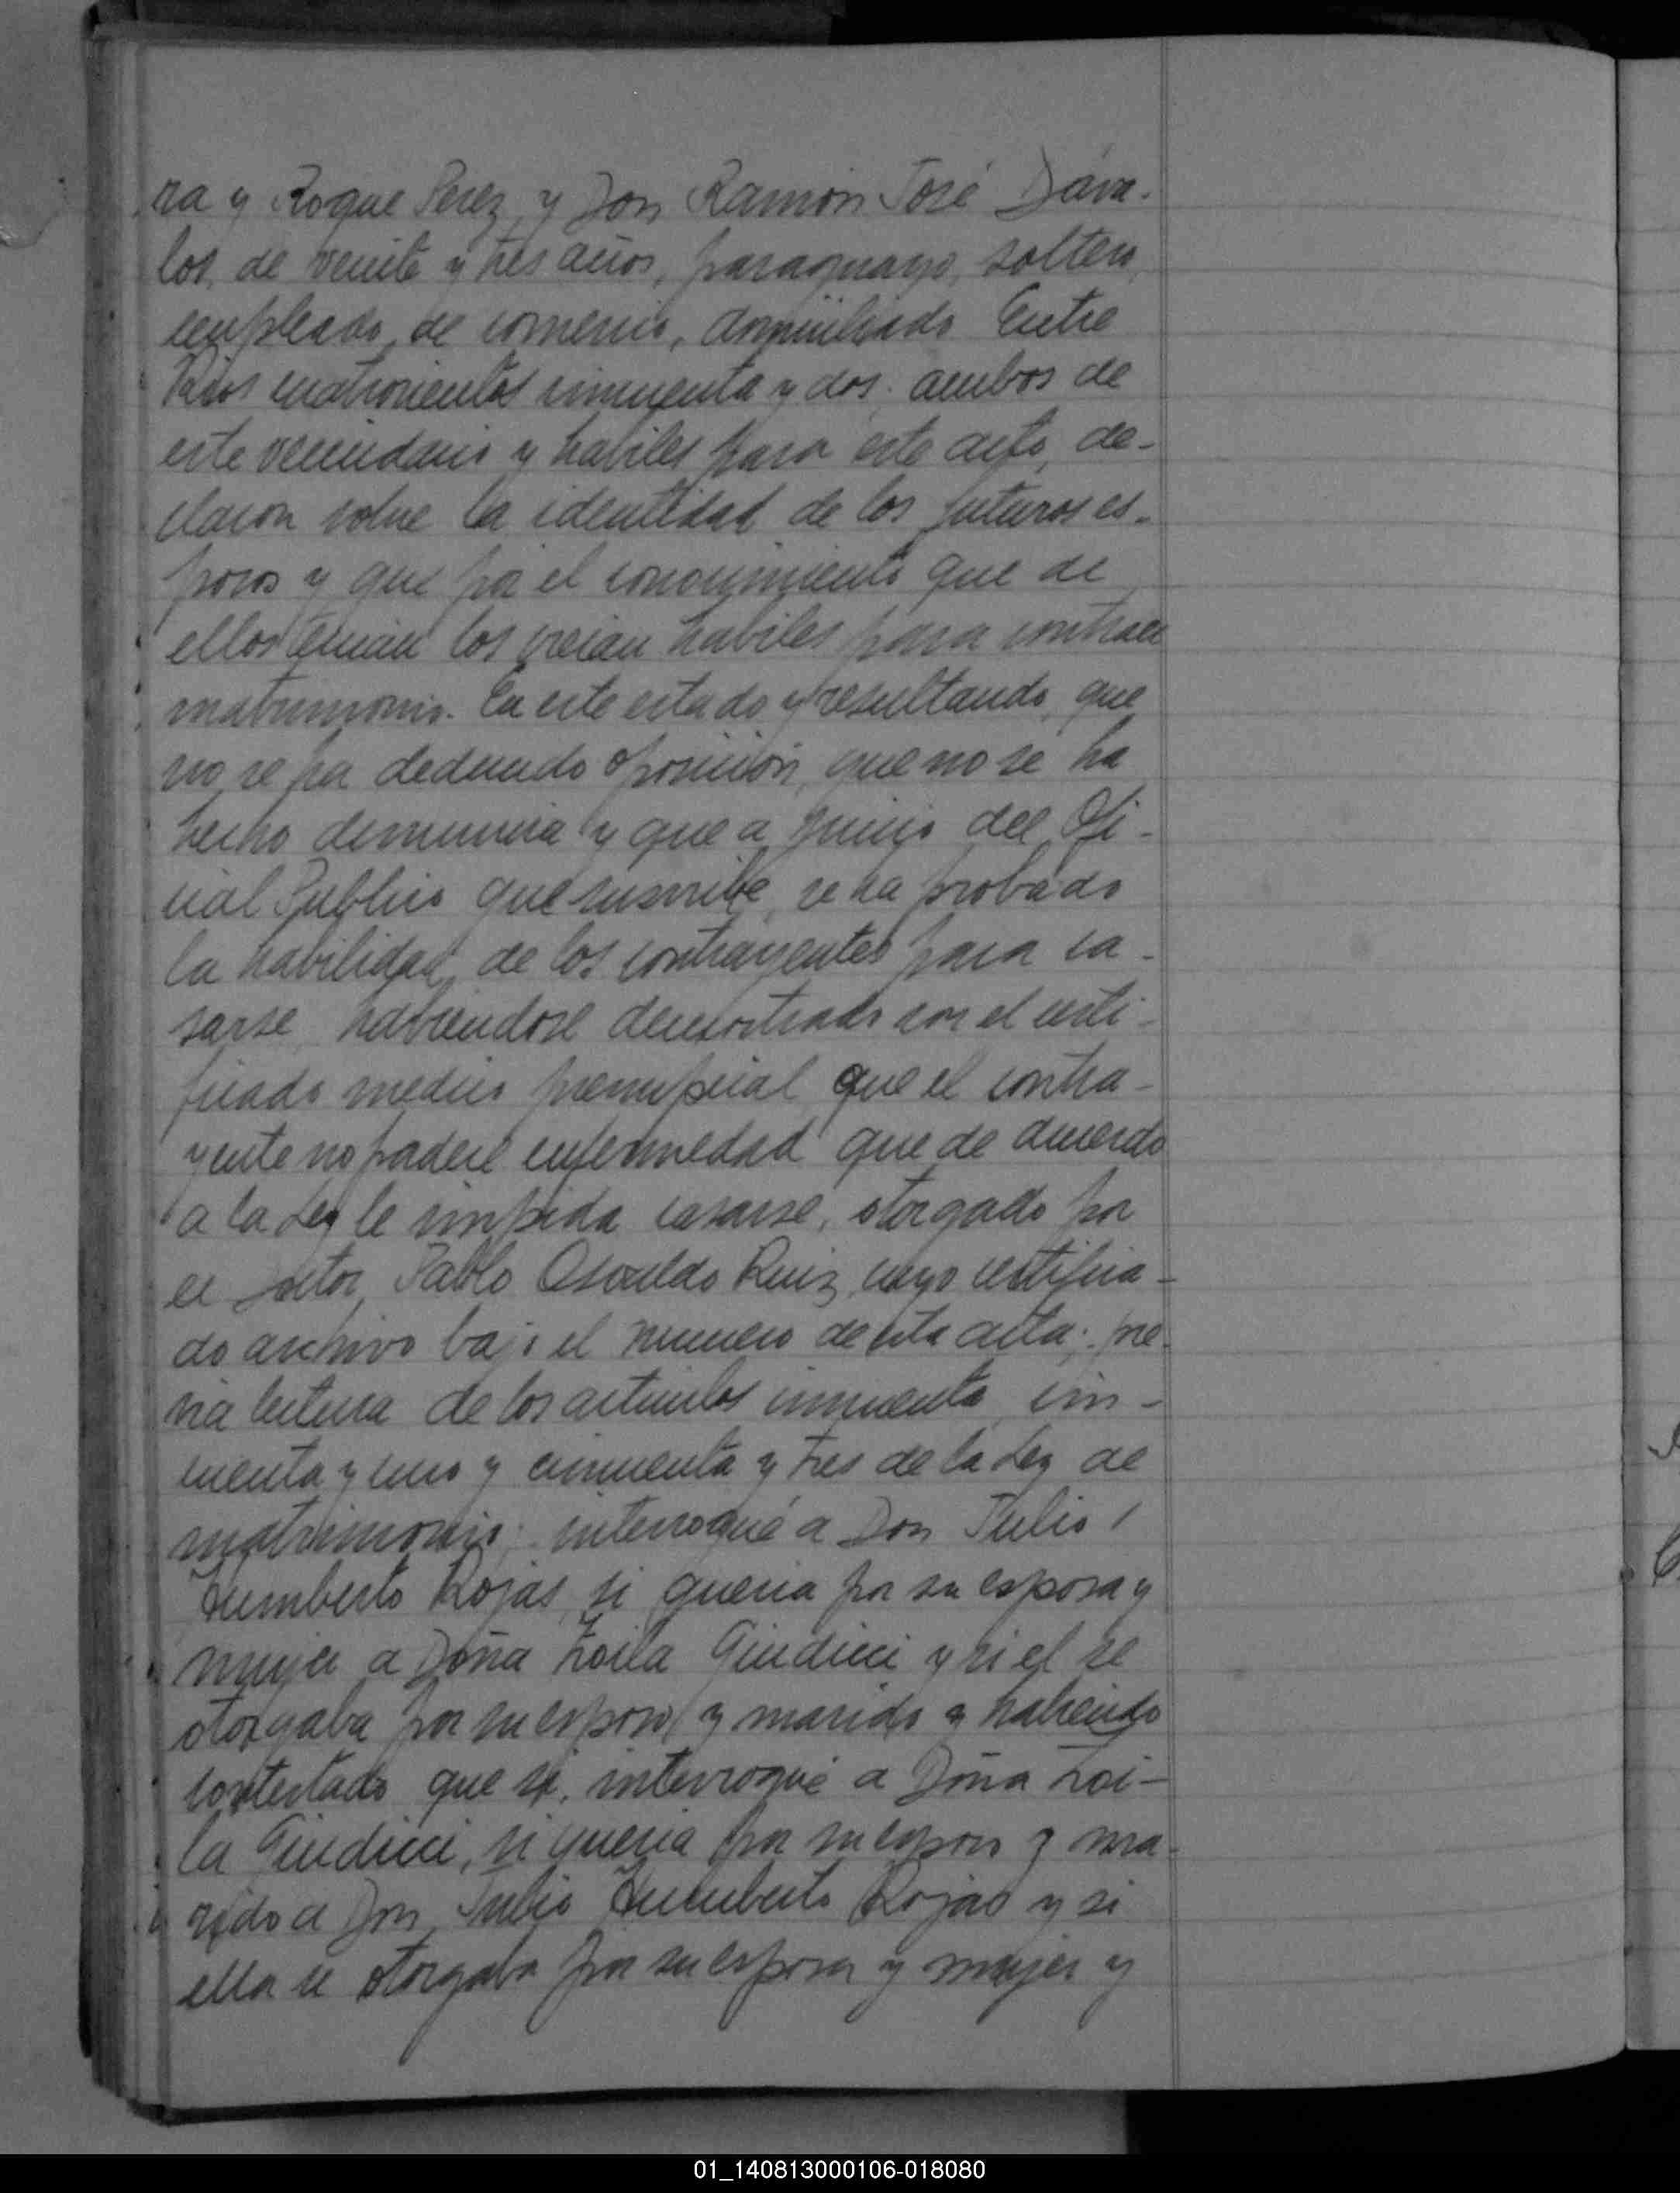 ra y Roque Perez, y Don Ramón José Dáva-
los, de veinte y tres años, paraguayo, soltero,
empleado de comercio, domiciliado Entre
Rios cuatrocientos cincuenta y dos; ambos de
este vecindario y habiles para este acto, de-
claron sobre la identidad de los futuros es-
posos y que por el conocimiento que de
ellos tenian los creian habiles para contraer
matrimonio. En este estado y resultando, que
no se ha deducido oposición, que no se ha
hecho denuncia y que a juicio del Ofi-
cial Publico que suscribe, se ha probado
la habilidad de los contrayentes para ca-
sarse, habiendose demostrado con el certi-
ficado medico prenupcial que el contra-
yente no padece enfermedad que de acuerdo
a la Ley le impida casarse, otorgado por
el Pablo Osvaldo Ruiz, cuyo certifica-
do archivo bajo el numero de esta acta; pre-
via lectura de los articulos cincuenta, cin-
cuenta y uno y cincuenta y tres de la Ley de
matrimonio; interrogué a Don Julio
Humberto Rojas, si queria por su esposa y
mujer a Doña Zoila Giudici y si el se
otorgaba por su esposo y marido y habiendo
contestado que si, interrogué a Doña Zoi-
la Giudici, si queria por su esposo y ma-
rido a Don Julio Humberto Rojas y si
ella se otorgaba por su esposa y mujer y
01_140813000106-018080